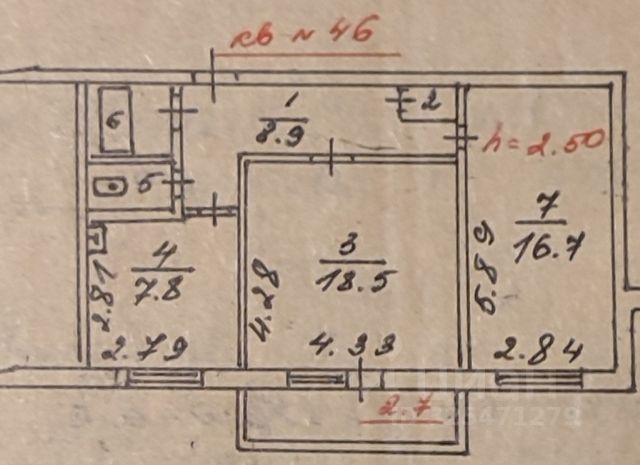 кв N 46
1
8.9
2
6
h=2.50
5
7
16.7
5.89
3
18.5
4
7.8
2.81
4.28
2.79
4.33
2.84
2.7